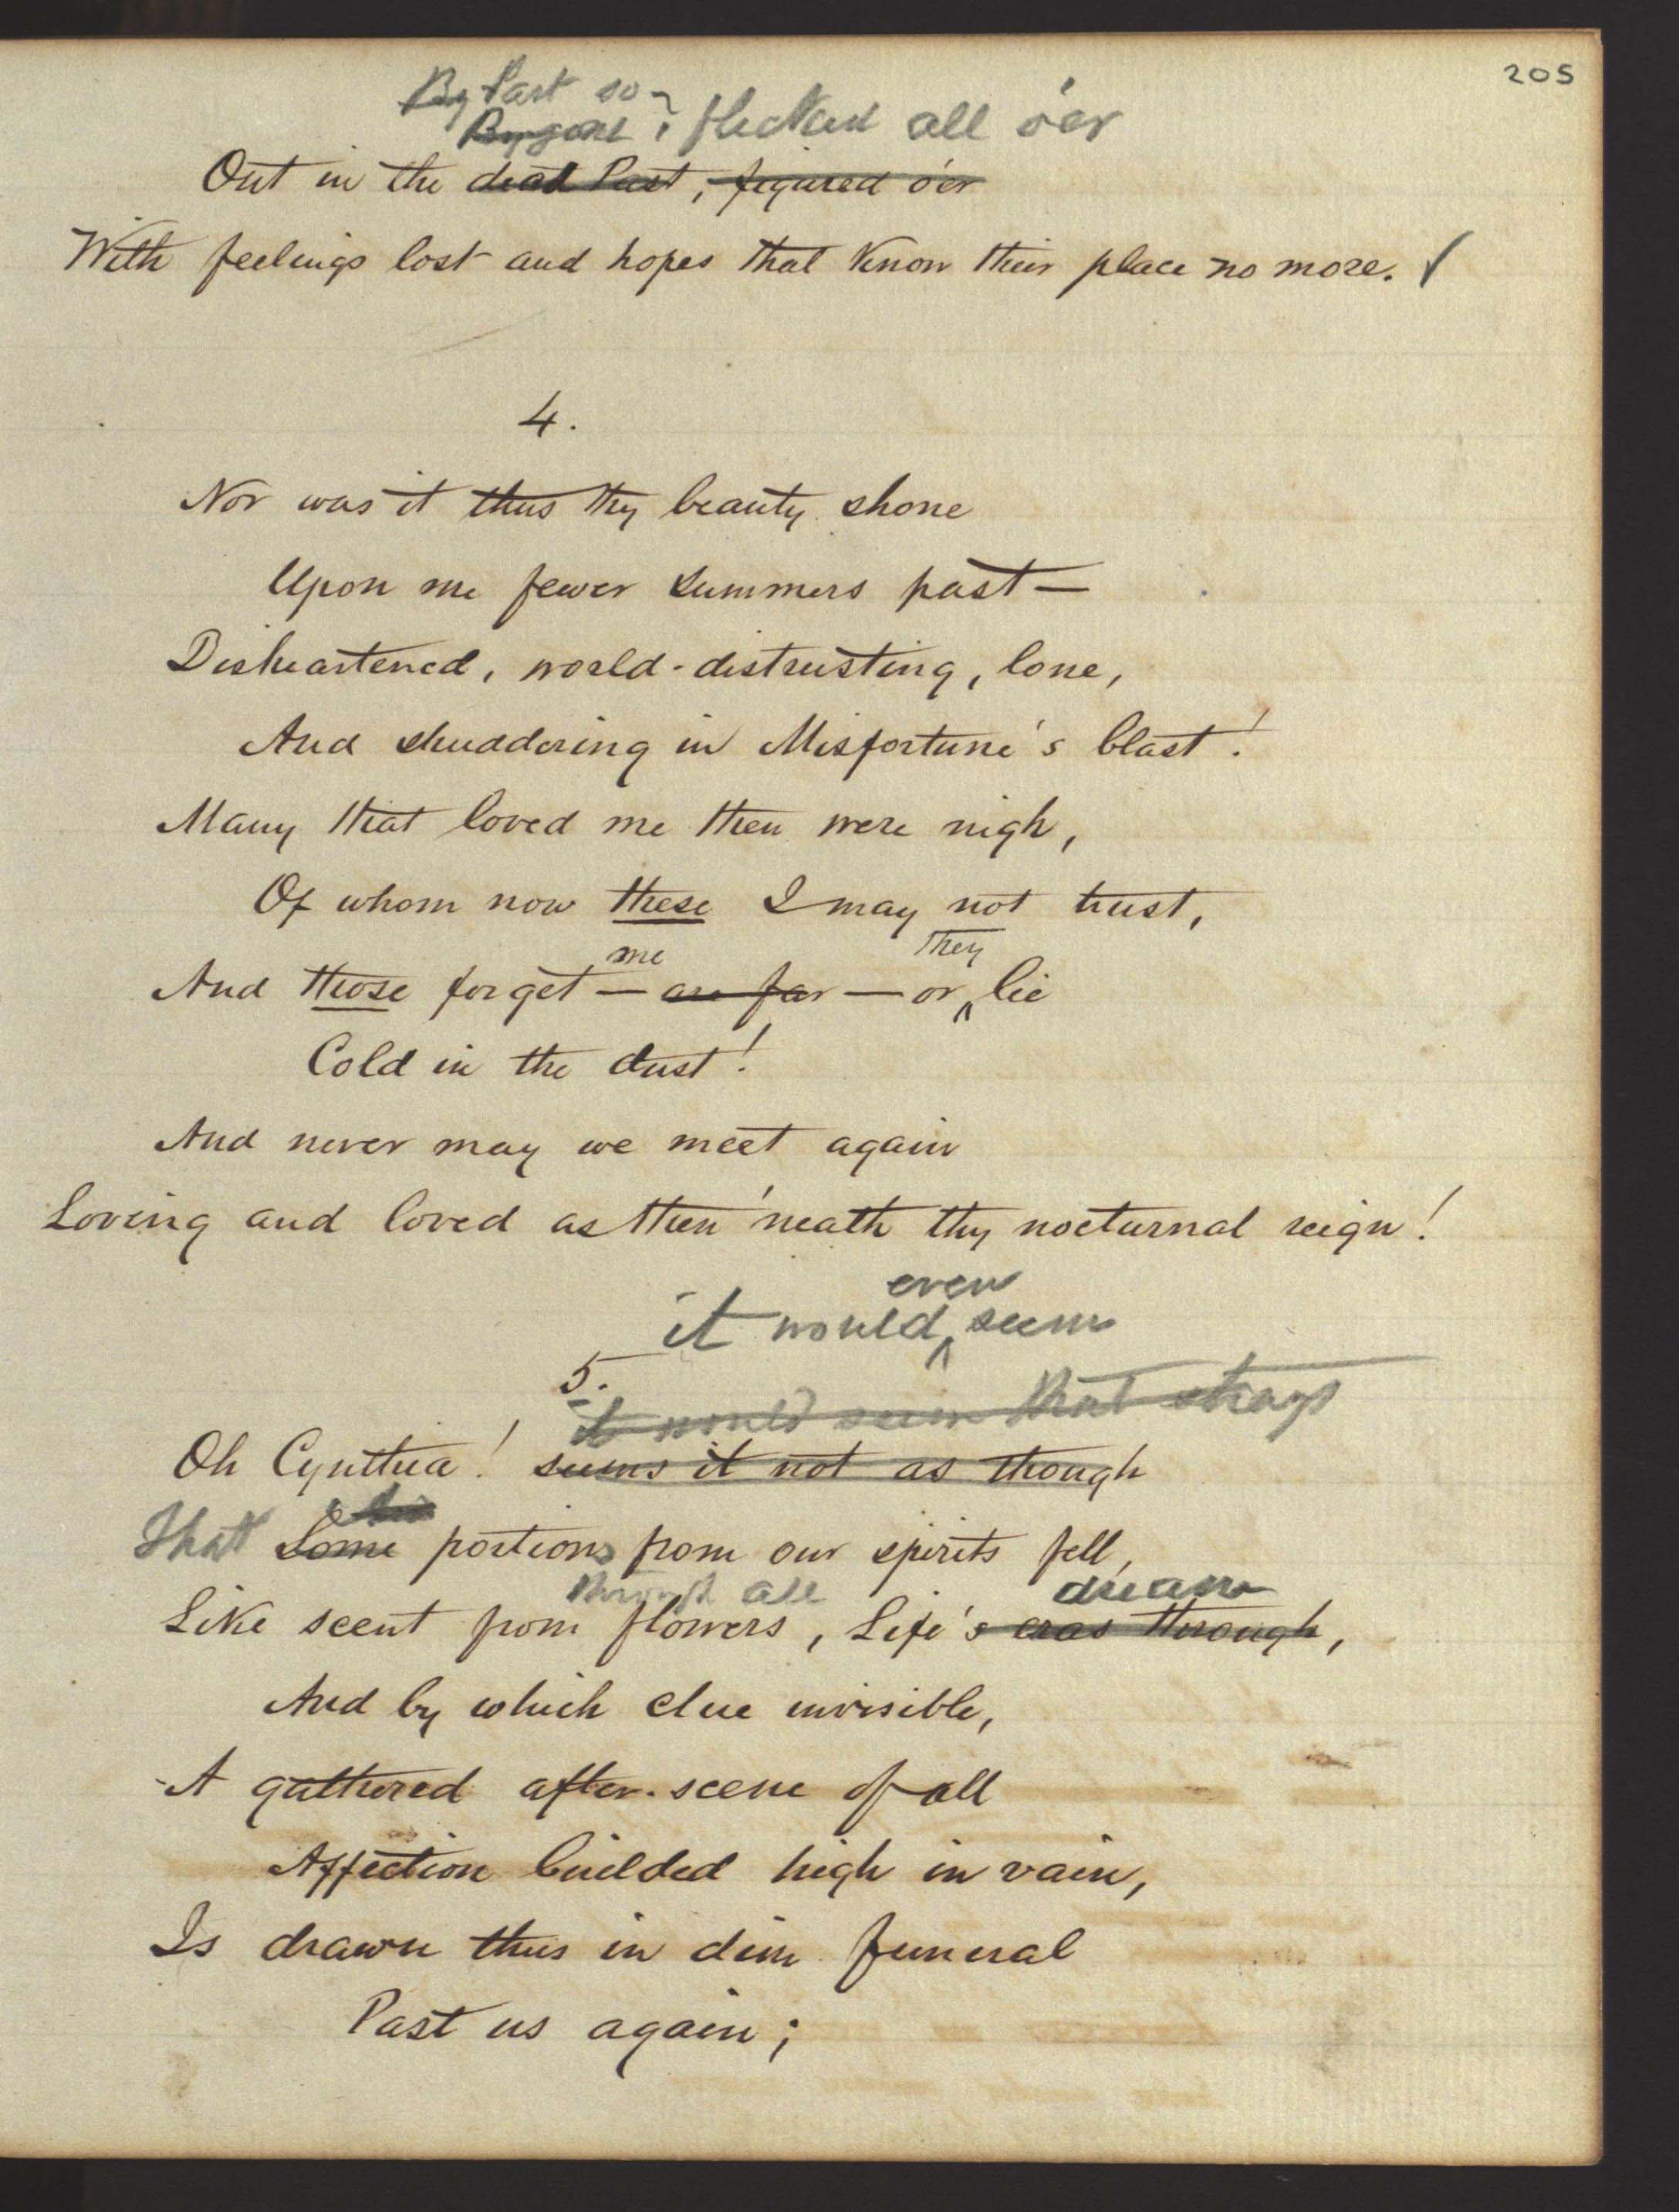 205
By Past so
Bygone ; flecked all o'er
Out in the dead Past, figured o'er
With feelings lost and hopes that know their place no more.
4.
Nor was it thus thy beauty shone
Upon me fewer summers past—
Disheartened, world-distrusting, lone,
And shuddering in Misfortune's blast!
Many that loved me then were nigh,
Of whom now these I may not trust,
me they
And those forget — are far — or lie
Cold in the dust!
And never may we meet again
Loving and loved as then 'neath thy nocturnal reign!
even
it would seem
5.
it would seem that
Oh Cynthia! seems it not as though
That Some portions from our spirits fell,
through all dream
Like scent from flowers, Life's eras through,
And by which clue invisible,
A gathered after-scene of all
Affection builded high in vain,
Is drawn thus in dim funeral
Past us again;